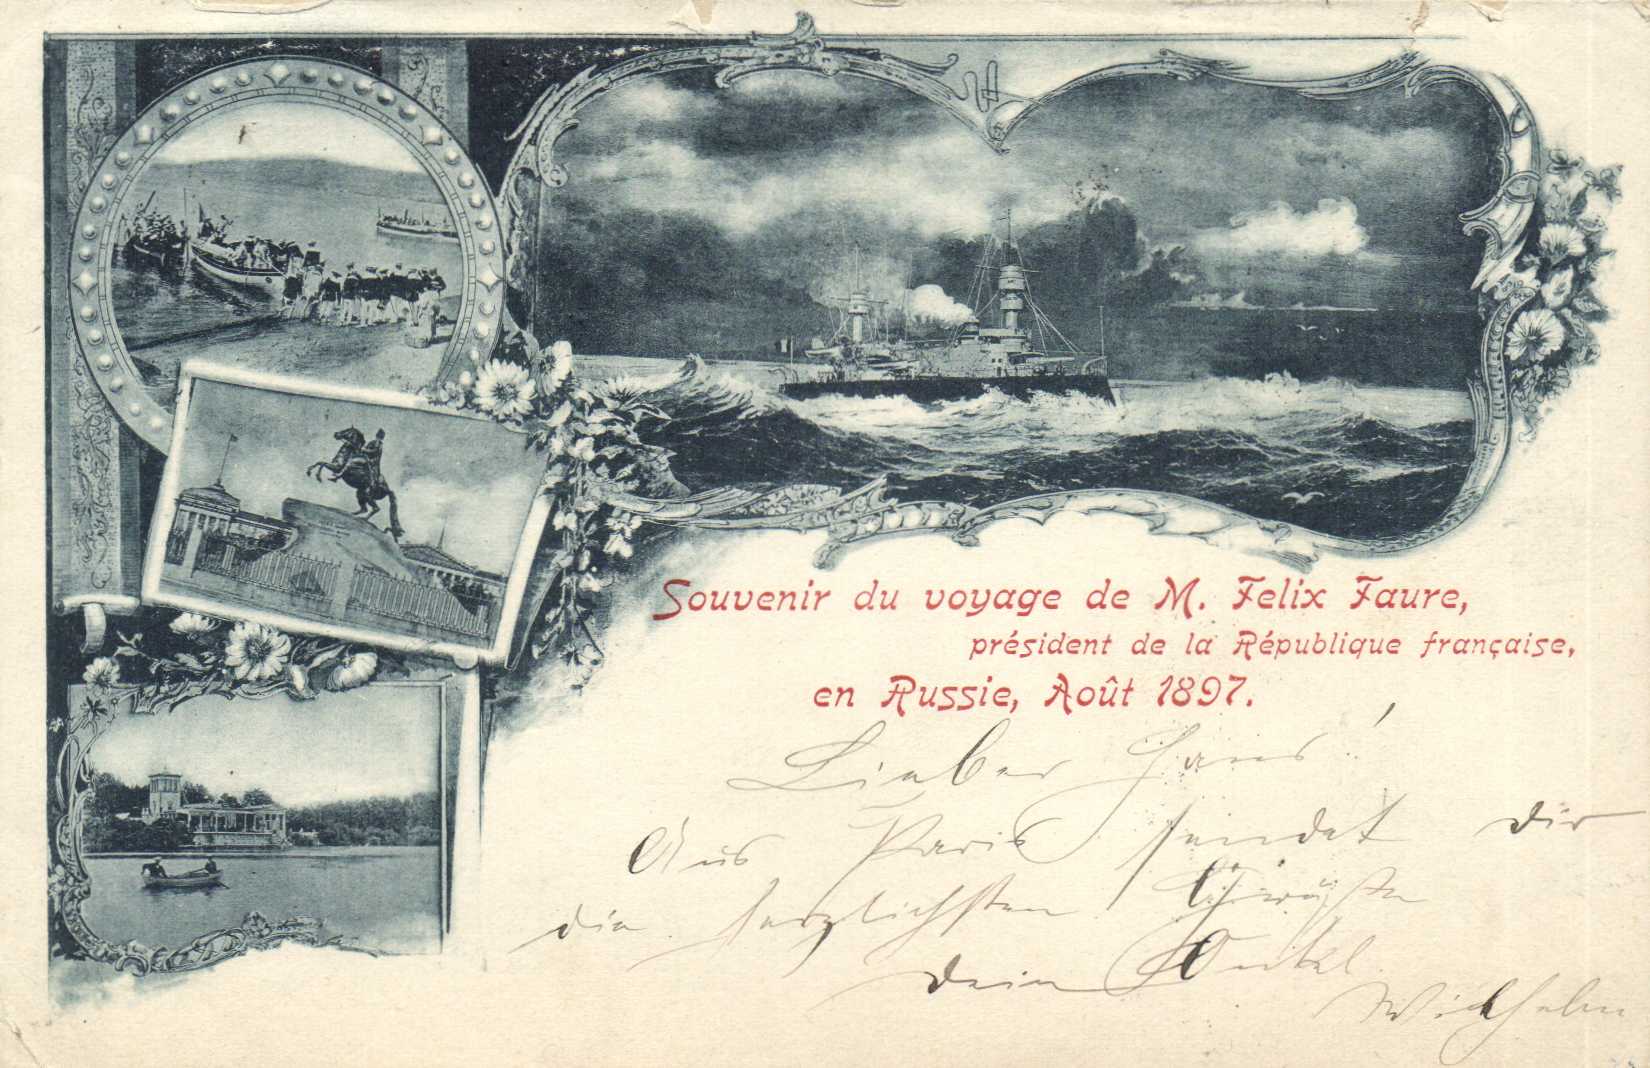 Souvenir du voyage de M. Felix Faure,
président de la République française,
en Russie, Août 1897.
Lieber Hans!
Aus Paris sendet Dir
die herzlichsten Grüße
Dein Onkel
Wilhelm